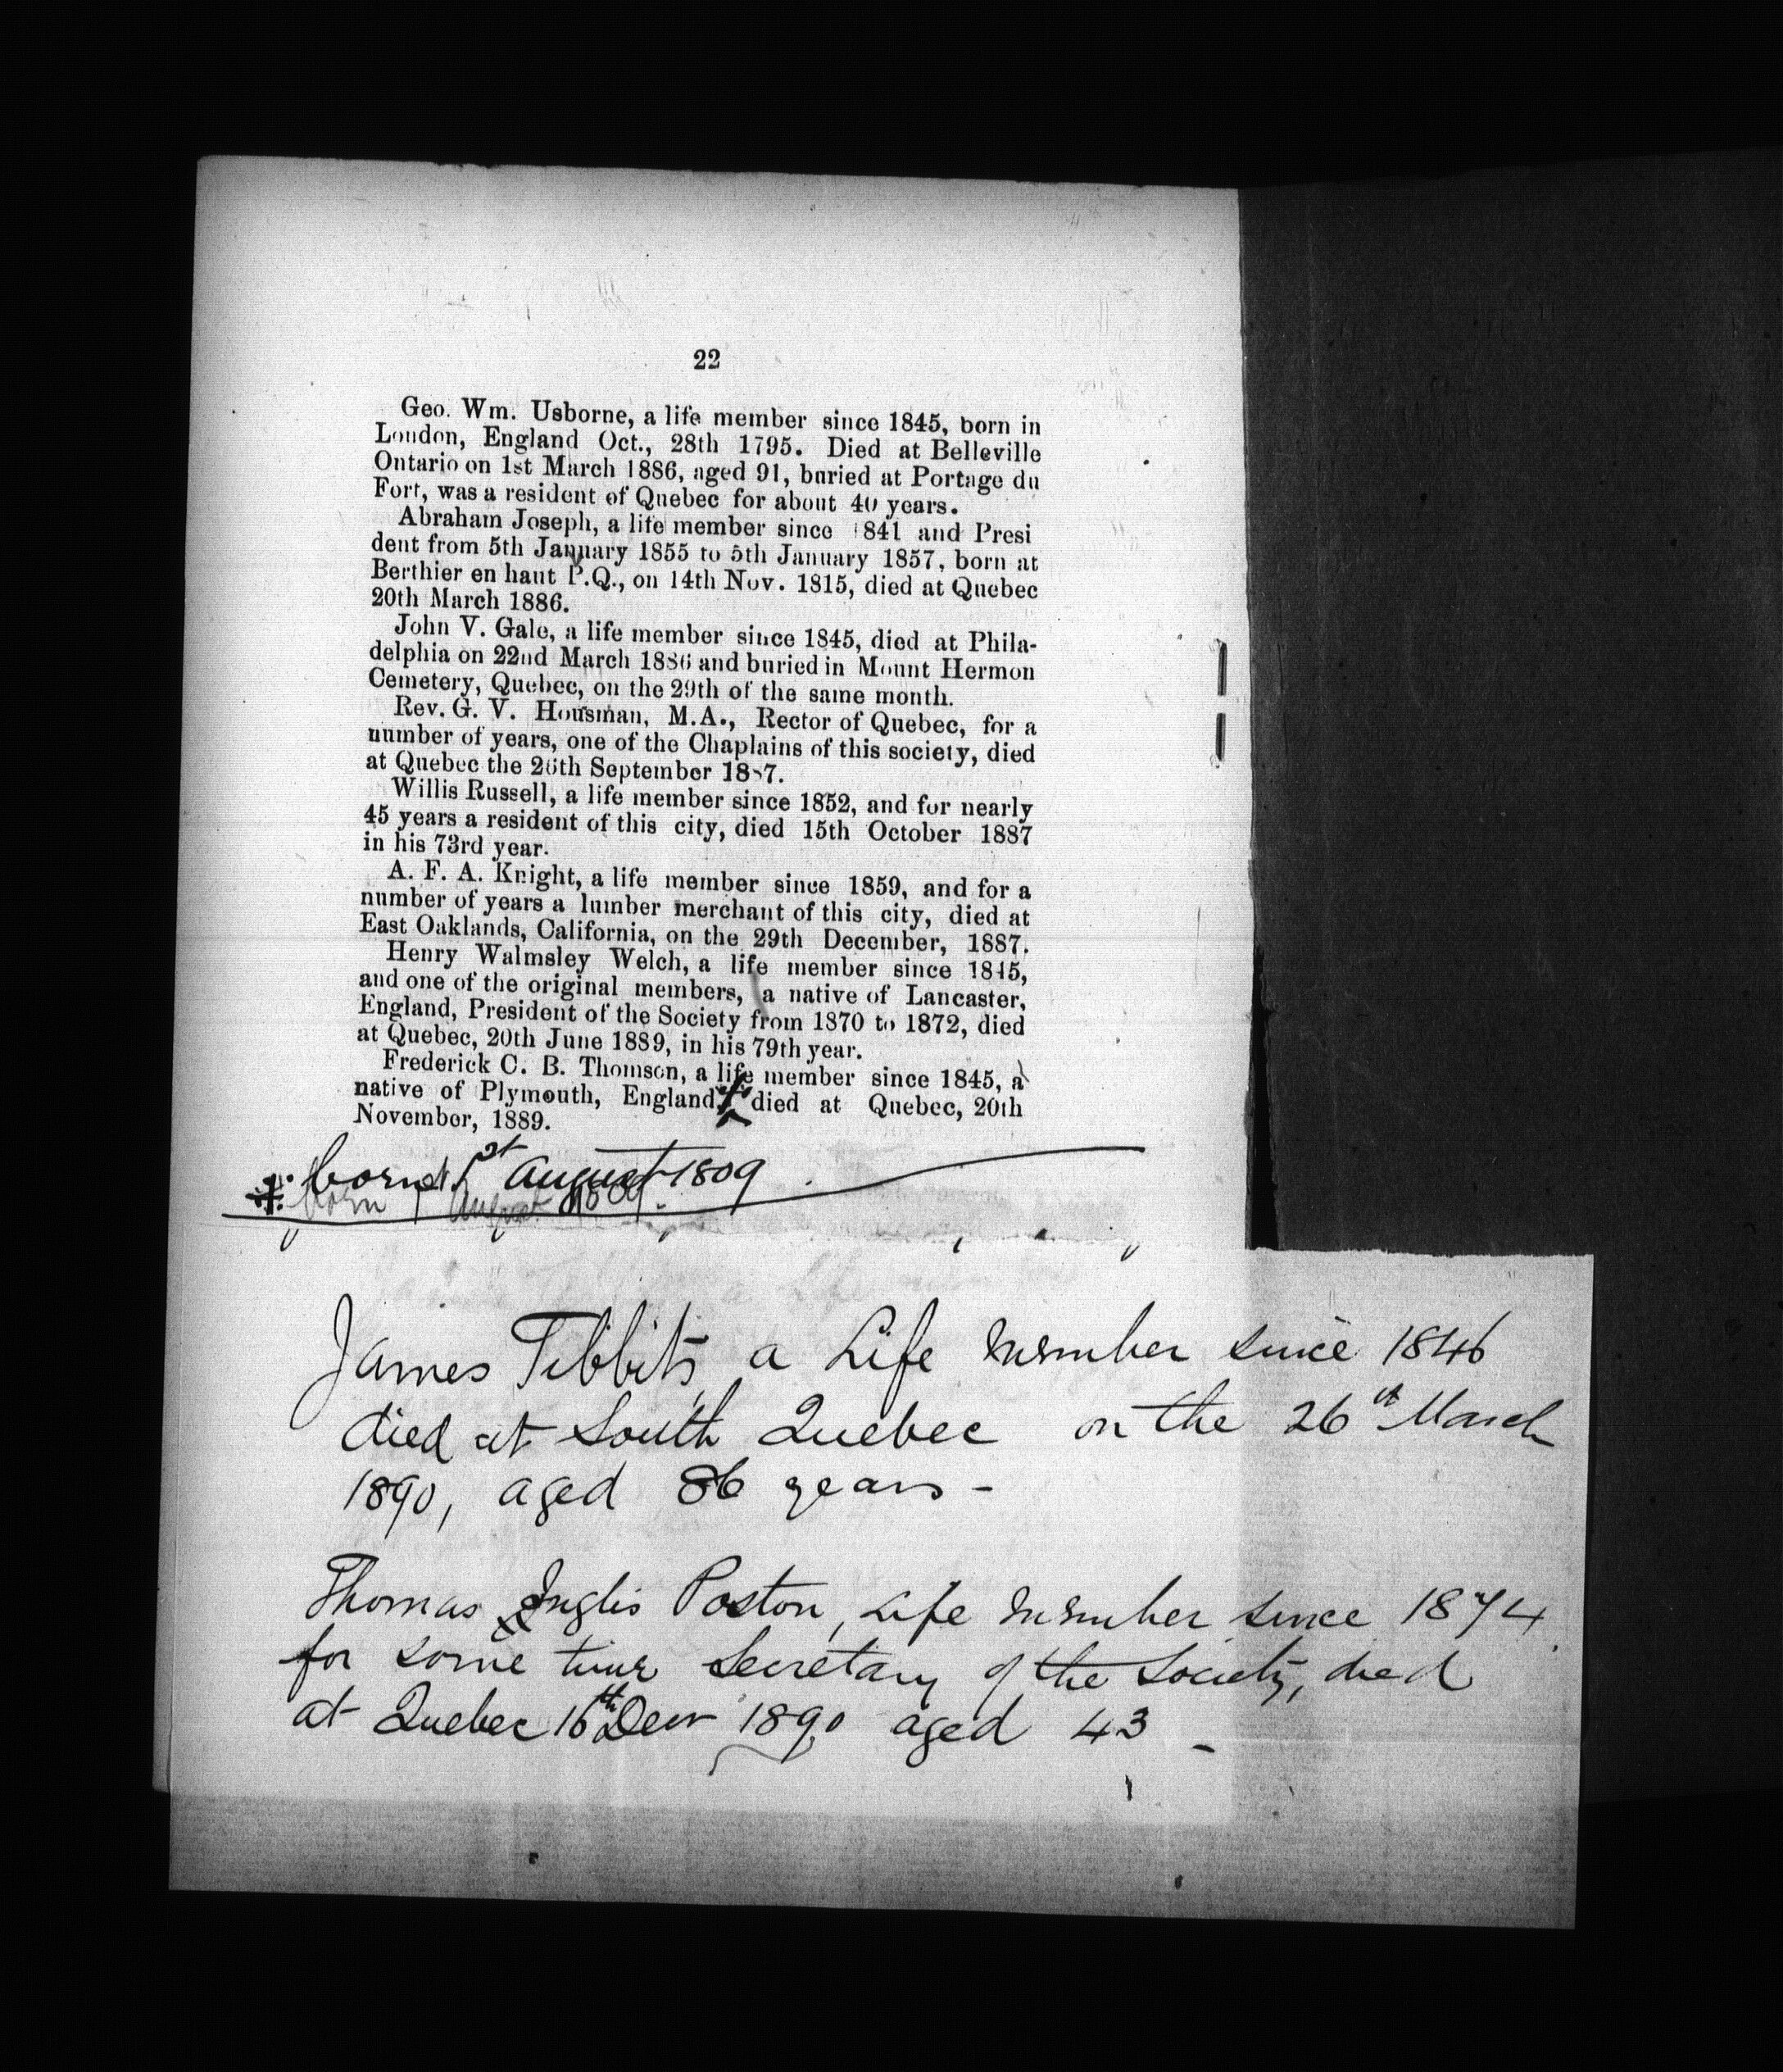 22
Geo. Wm. Usborne, a life member since 1845, born in
London, England Oct., 28th 1795. Died at Belleville
Ontario on 1st March 1886, aged 91, buried at Portage du
Fort, was a resident of Quebec for about 40 years.
Abraham Joseph, a life member since 1841 and Presi
dent from 5th January 1855 to 5th January 1857, born at
Berthier en haut P.Q., on 14th Nov. 1815, died at Quebec
20th March 1886.
John V. Gale, a life member since 1845, died at Phila-
delphia on 22nd March 1886 and buried in Mount Hermon
Cemetery, Quebec, on the 29th of the same month.
Rev. G. V. Housman, M.A., Rector of Quebec, for a
number of years, one of the Chaplains of this society, died
at Quebec the 26th September 1887.
Willis Russell, a life member since 1852, and for nearly
45 years a resident of this city, died 15th October 1887
in his 73rd year.
A. F. A. Knight, a life member since 1859, and for a
number of years a lumber merchant of this city, died at
East Oaklands, California, on the 29th December, 1887.
Henry Walmsley Welch, a life member since 1845,
and one of the original members, a native of Lancaster,
England, President of the Society from 1870 to 1872, died
at Quebec, 20th June 1889, in his 79th year.
Frederick C. B. Thomson, a life member since 1845, a
native of Plymouth, England, died at Quebec, 20th
November, 1889.
born 1st August 1809
born 1 August 1809.
James Tibbits, a Life member since 1846
died at South Quebec on the 26th March
1890, aged 86 years -
Thomas Inglis Poston, Life member since 1874
for some time Secretary of the Society, died
at Quebec 16th Decr 1890 aged 43 -